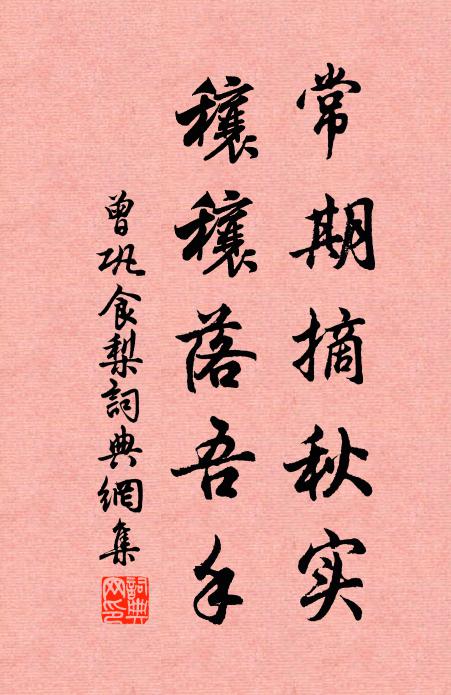 常期摘秋实
穰穰落吾手
曾巩食梨詞典網集
詞典
网印